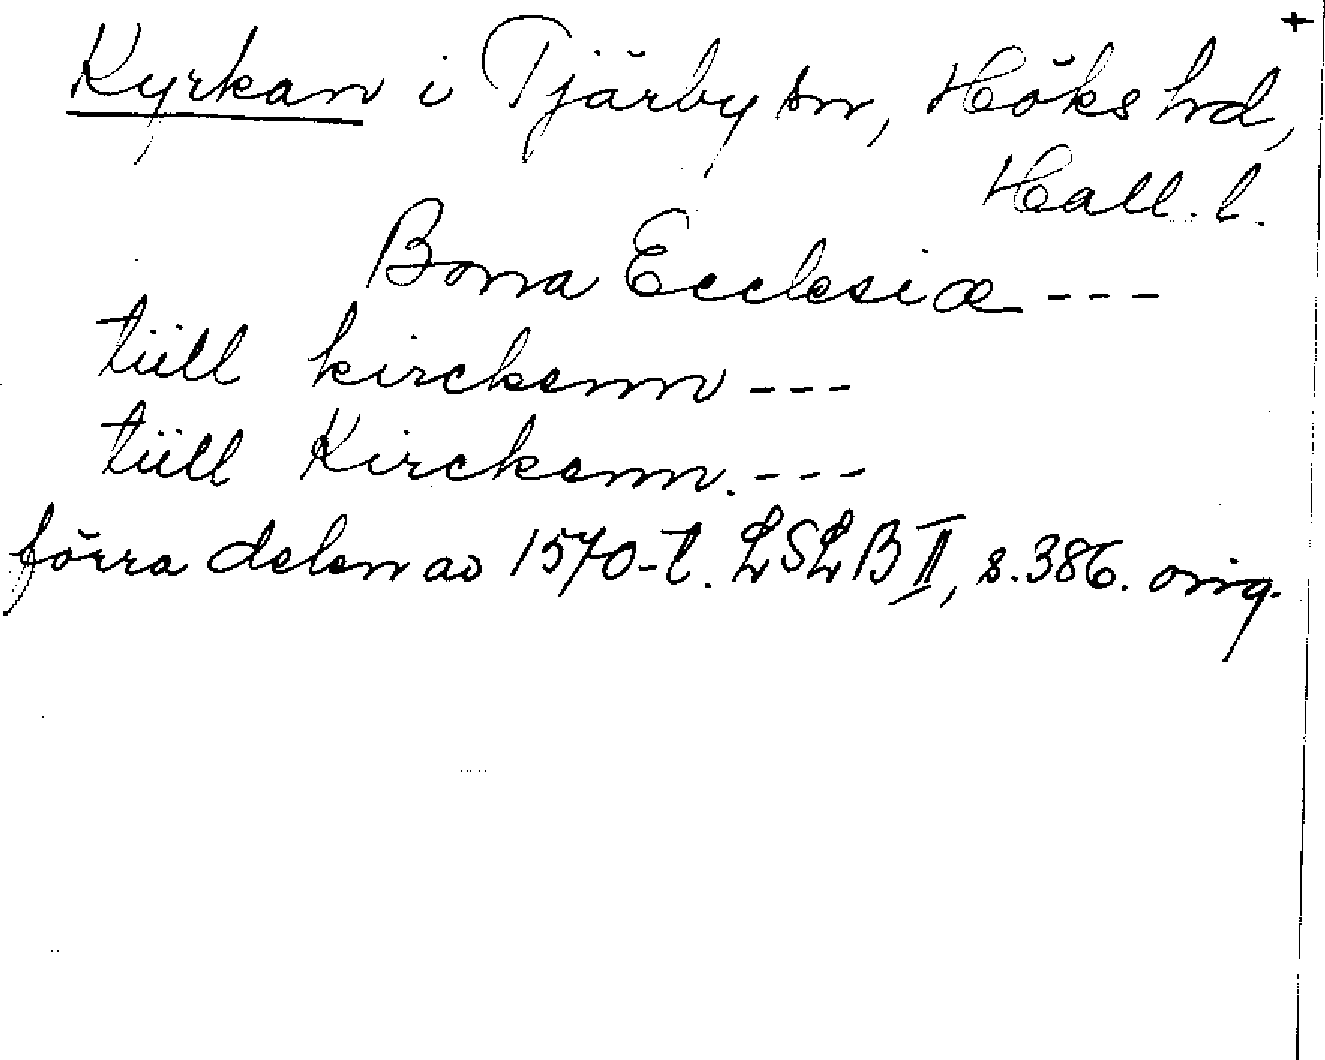 +
Kyrkan i Tjärby sn, Höks hd,
Hall. l.
Bona Ecclesiæ ---
tiill kirckenn ---
tiill Kirckenn. ---
förra delen av 1570-t. LSLB II, s. 386. orig.